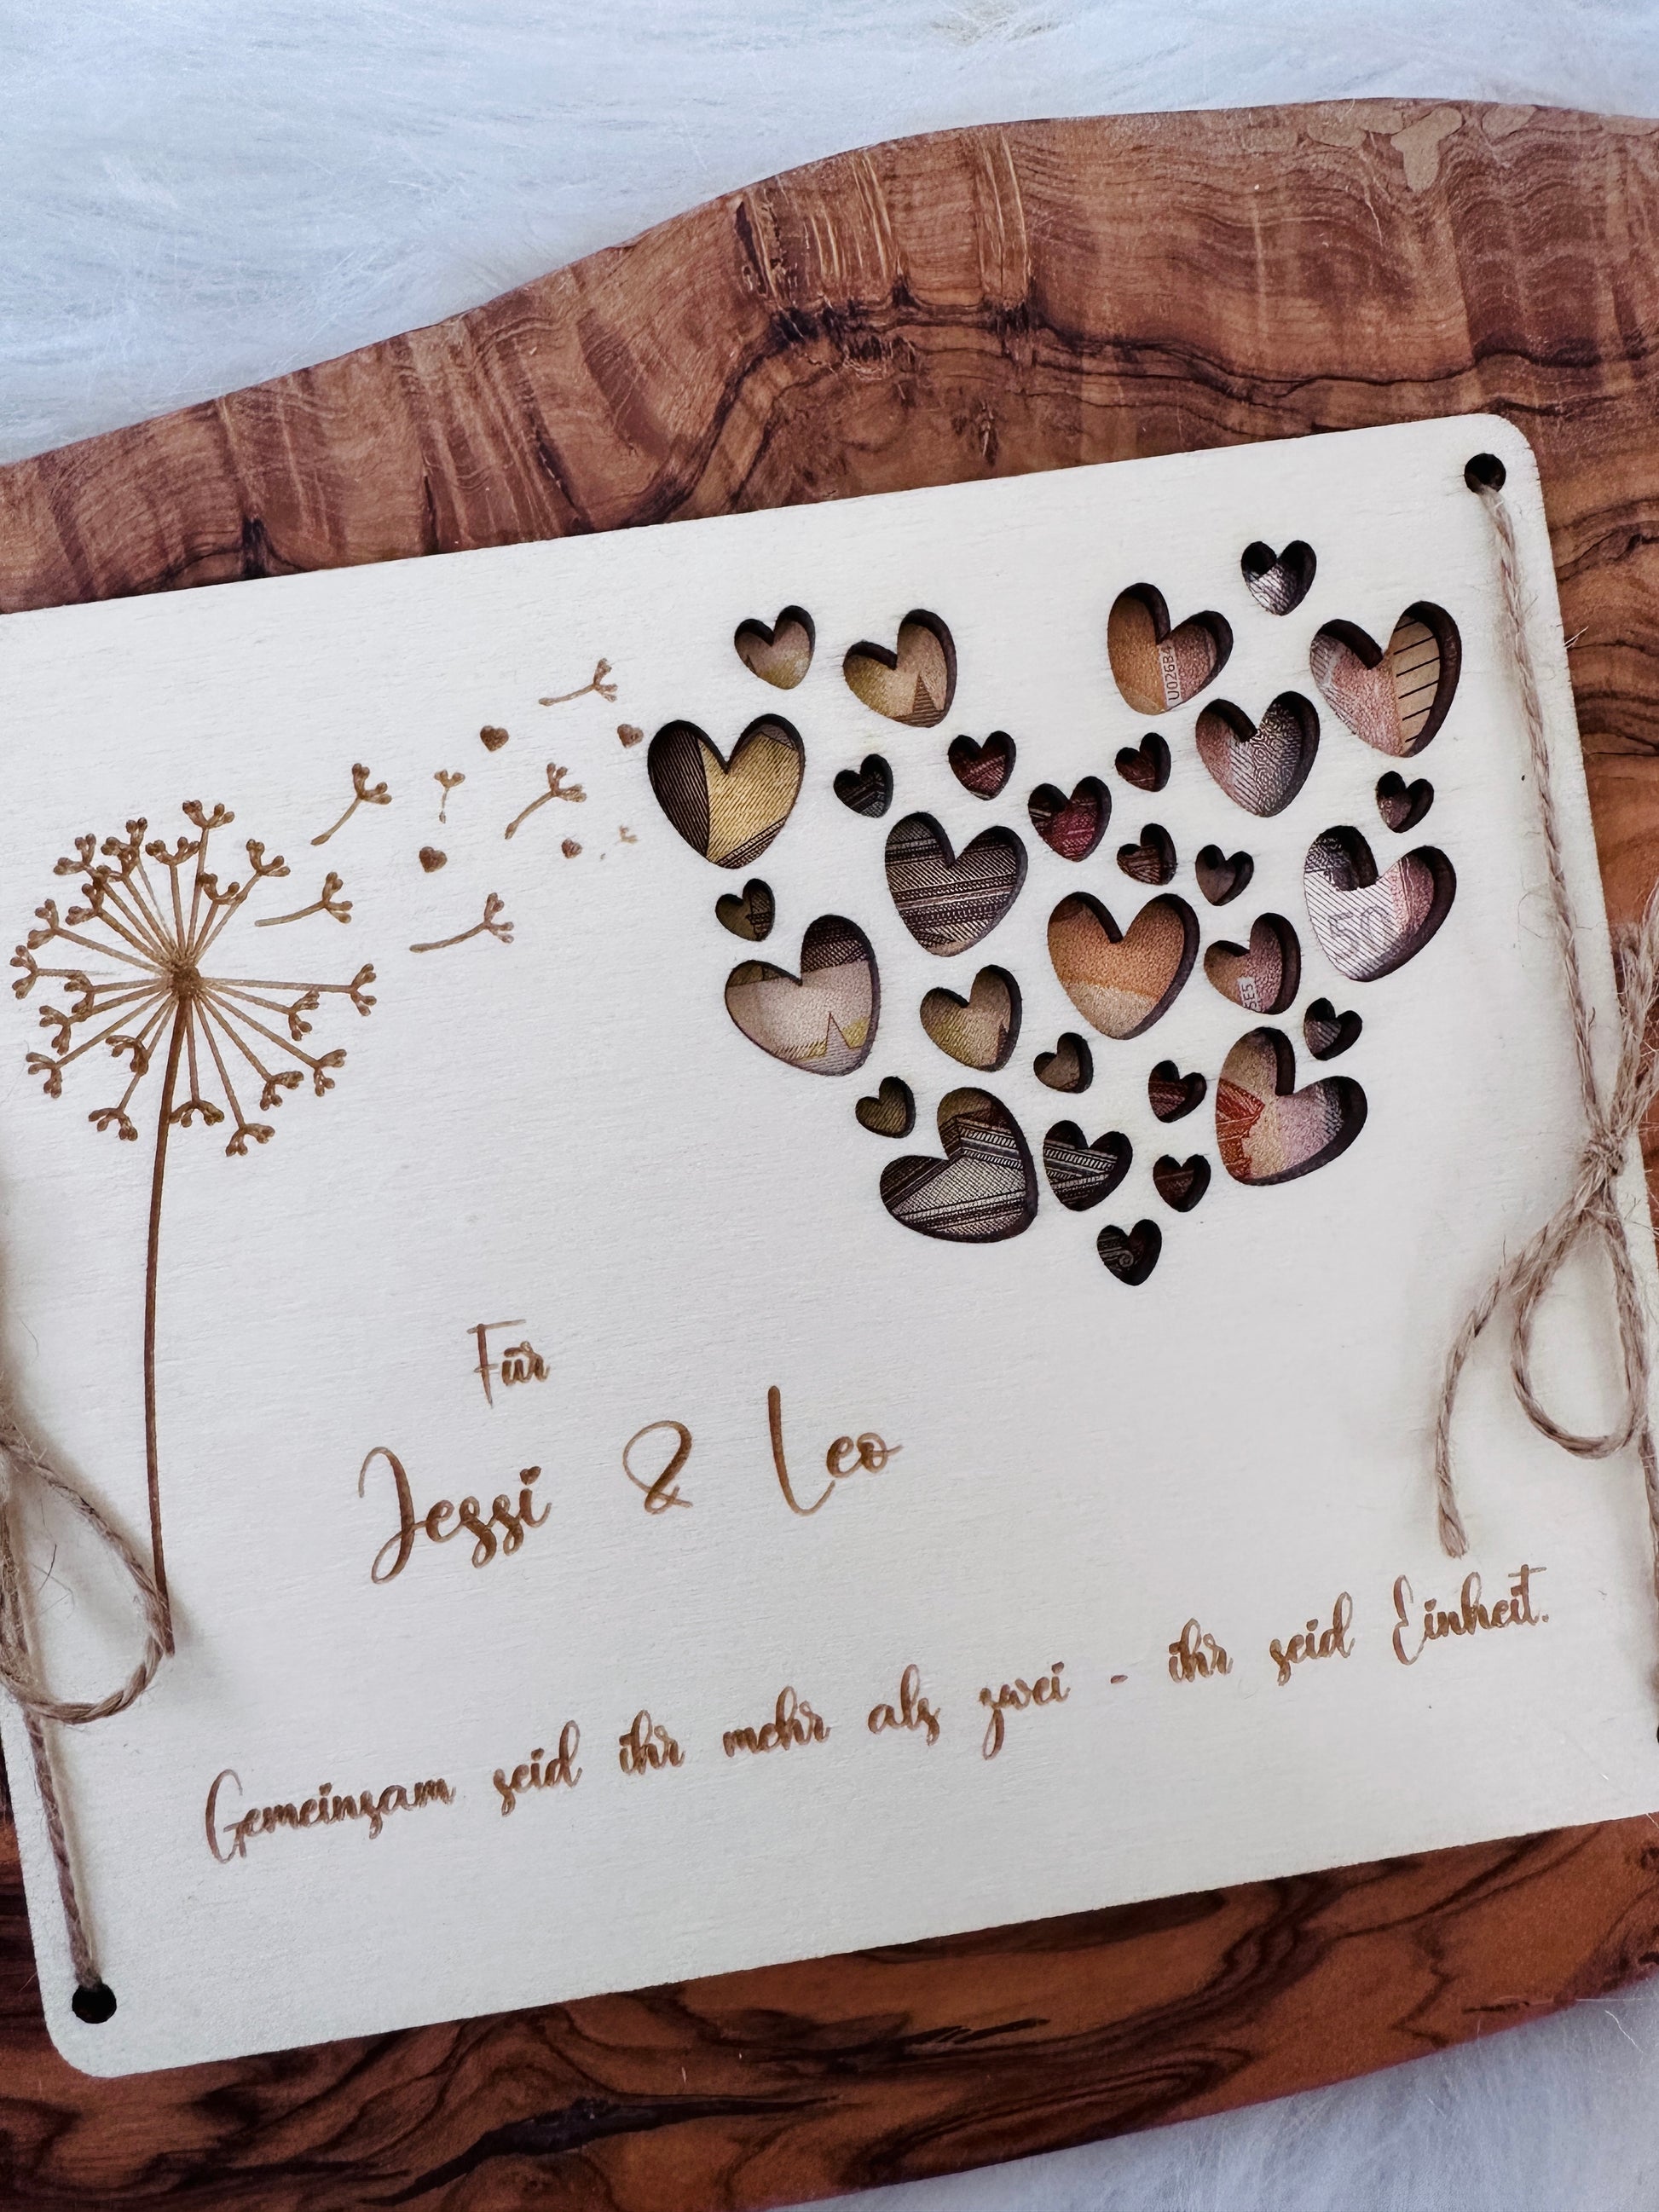 U026B4
50
SE5
Für
Jessi & Leo
Gemeinsam seid ihr mehr als zwei - ihr seid Einheit.